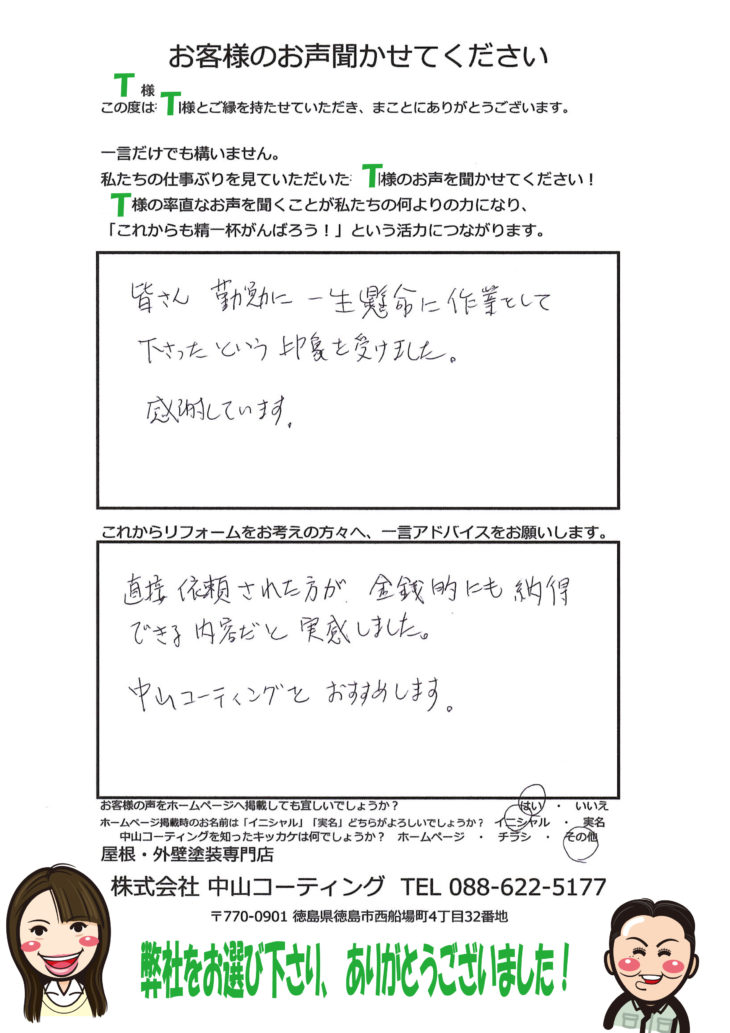 お客様のお声聞かせてください
T 様
この度は T 様とご縁を持たせていただき、まことにありがとうございます。
一言だけでも構いません。
私たちの仕事ぶりを見ていただいた T 様のお声を聞かせてください！
T 様の率直なお声を聞くことが私たちの何よりの力になり、
「これからも精一杯がんばろう！」という活力につながります。
皆さん 勤勉に 一生懸命に作業をして
下さったという印象を受けました。
感謝しています。
これからリフォームをお考えの方々へ、一言アドバイスをお願いします。
直接依頼された方が、金銭的にも納得
できる内容だと実感しました。
中山コーティングをおすすめします。
お客様の声をホームページへ掲載しても宜しいでしょうか？ はい ・ いいえ
ホームページ掲載時のお名前は「イニシャル」「実名」どちらがよろしいでしょうか？ イニシャル ・ 実名
中山コーティングを知ったキッカケは何でしょうか？ ホームページ ・ チラシ ・ その他
屋根・外壁塗装専門店
株式会社 中山コーティング TEL 088-622-5177
〒770-0901 徳島県徳島市西船場町4丁目32番地
弊社をお選び下さり、ありがとうございました！